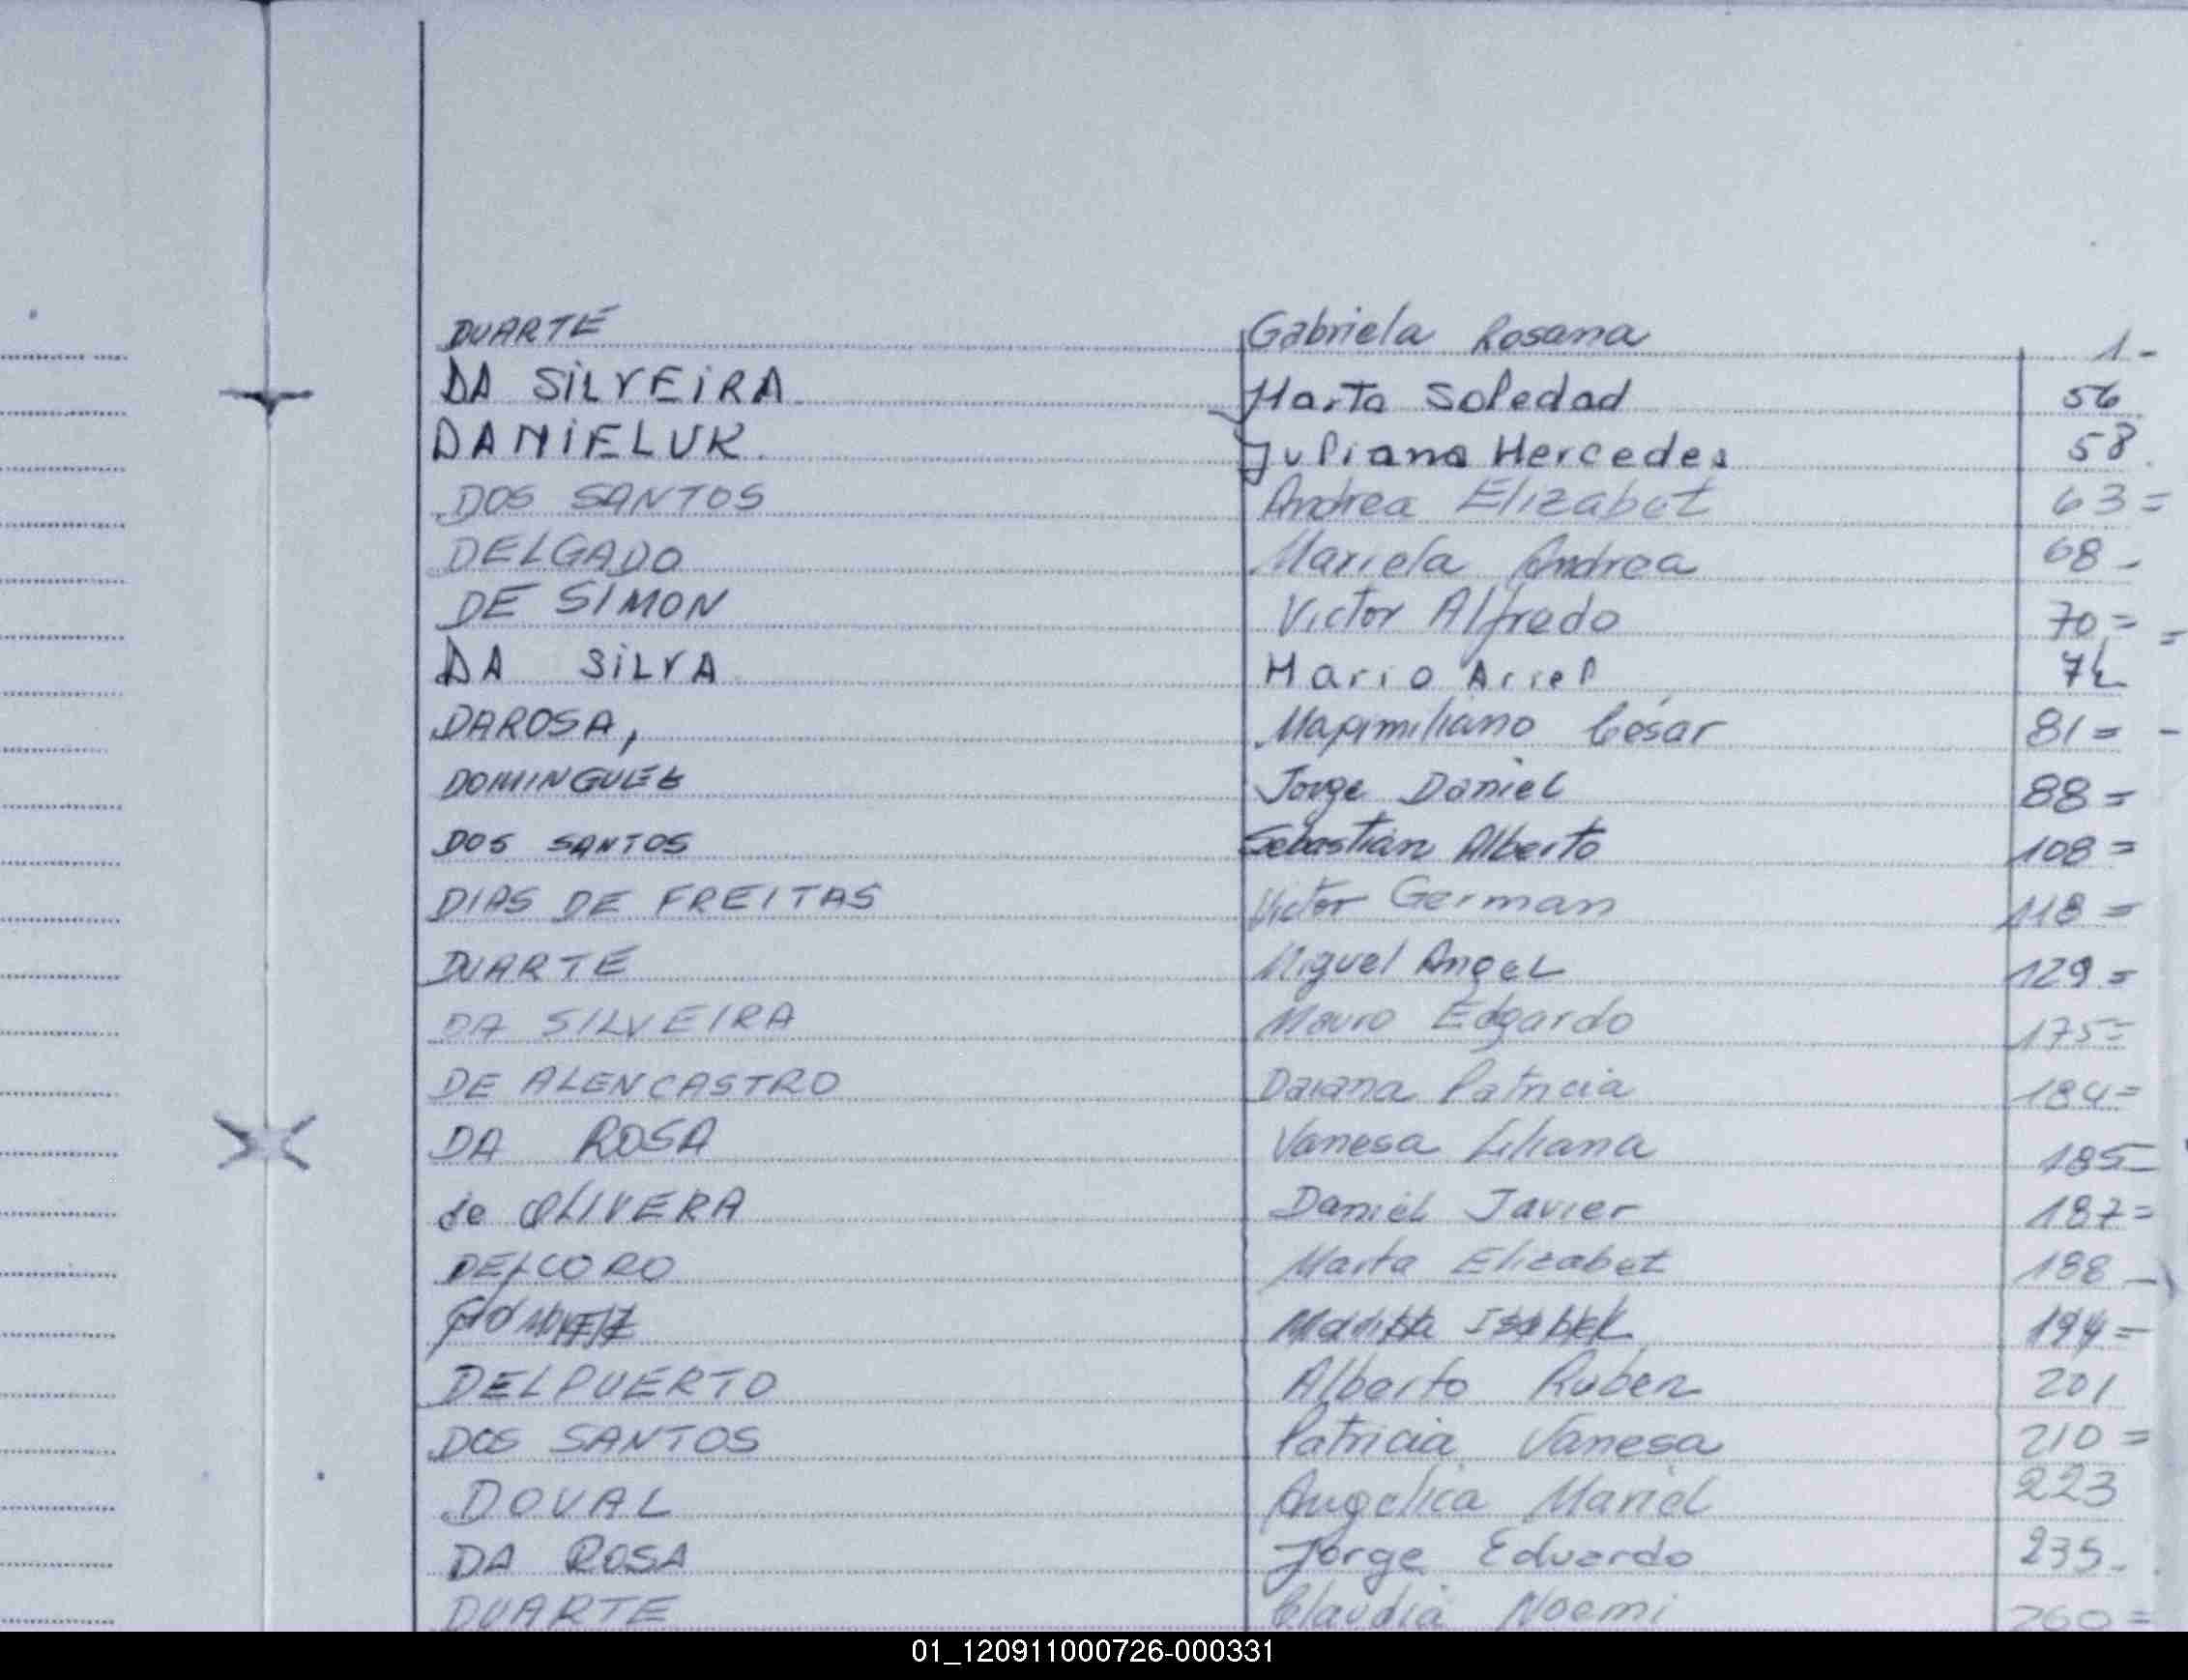 DUARTE Gabriela Rosana 1-
DA SILVEIRA Marta Soledad 56
DANIELUK Juliana Mercedes 58
DOS SANTOS Andrea Elizabet 63=
DELGADO Mariela Andrea 68-
DE SIMON Victor Alfredo 70=
DA SILVA Mario Ariel 72
DAROSA, Maximiliano César 81=
DOMINGUEZ Jorge Daniel 88=
DOS SANTOS Sebastián Alberto 108=
DIAS DE FREITAS Victor German 118=
DUARTE Miguel Angel 129=
DA SILVEIRA Mauro Edgardo 175=
DE ALENCASTRO Daiana Patricia 184=
DA ROSA Vanesa Liliana 185-
de OLIVERA Daniel Javier 187=
DELCORO Marta Elizabet 188-
194=
DELPUERTO Alberto Ruben 201
DOS SANTOS Patricia Vanesa 210=
DOVAL Angelica Mariel 223
DA ROSA Jorge Eduardo 235-
DUARTE Claudia Noemi 260=
01_120911000726-000331